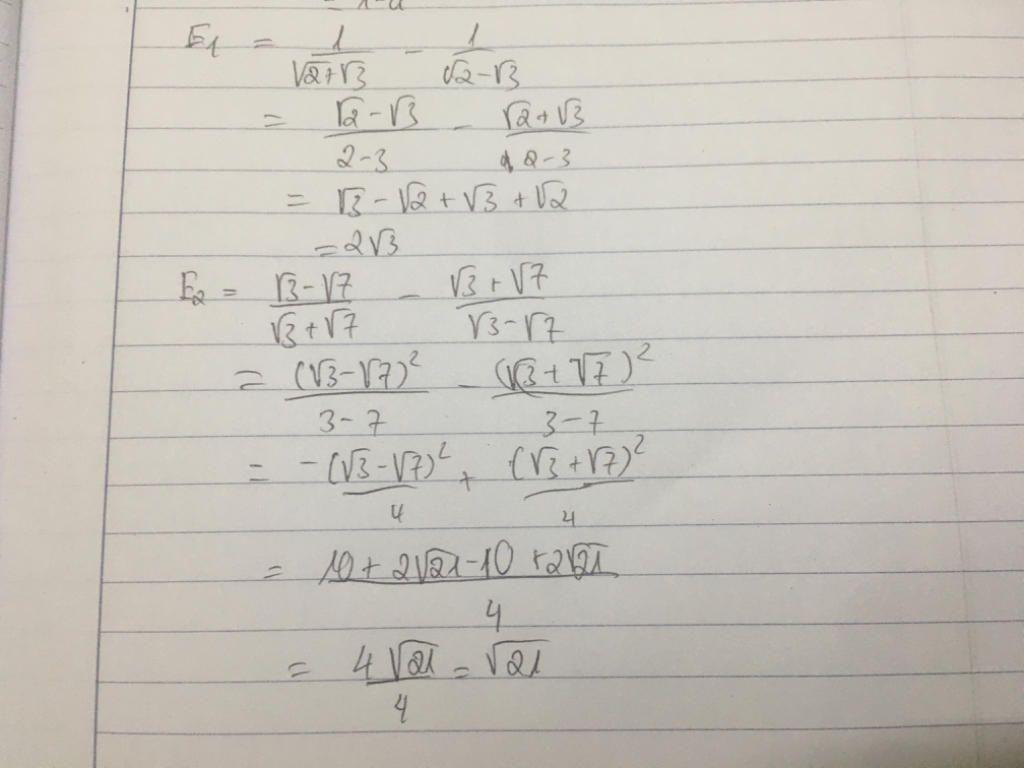 E₁ = 1/(√2+√3) − 1/(√2−√3)
= (√2−√3)/(2−3) − (√2+√3)/(2−3)
= √3 − √2 + √3 + √2
= 2√3
E₂ = (√3−√7)/(√3+√7) − (√3+√7)/(√3−√7)
= (√3−√7)²/(3−7) − (√3+√7)²/(3−7)
= −(√3−√7)²/4 + (√3+√7)²/4
= (10+2√21−10+2√21)/4
= 4√21/4 = √21